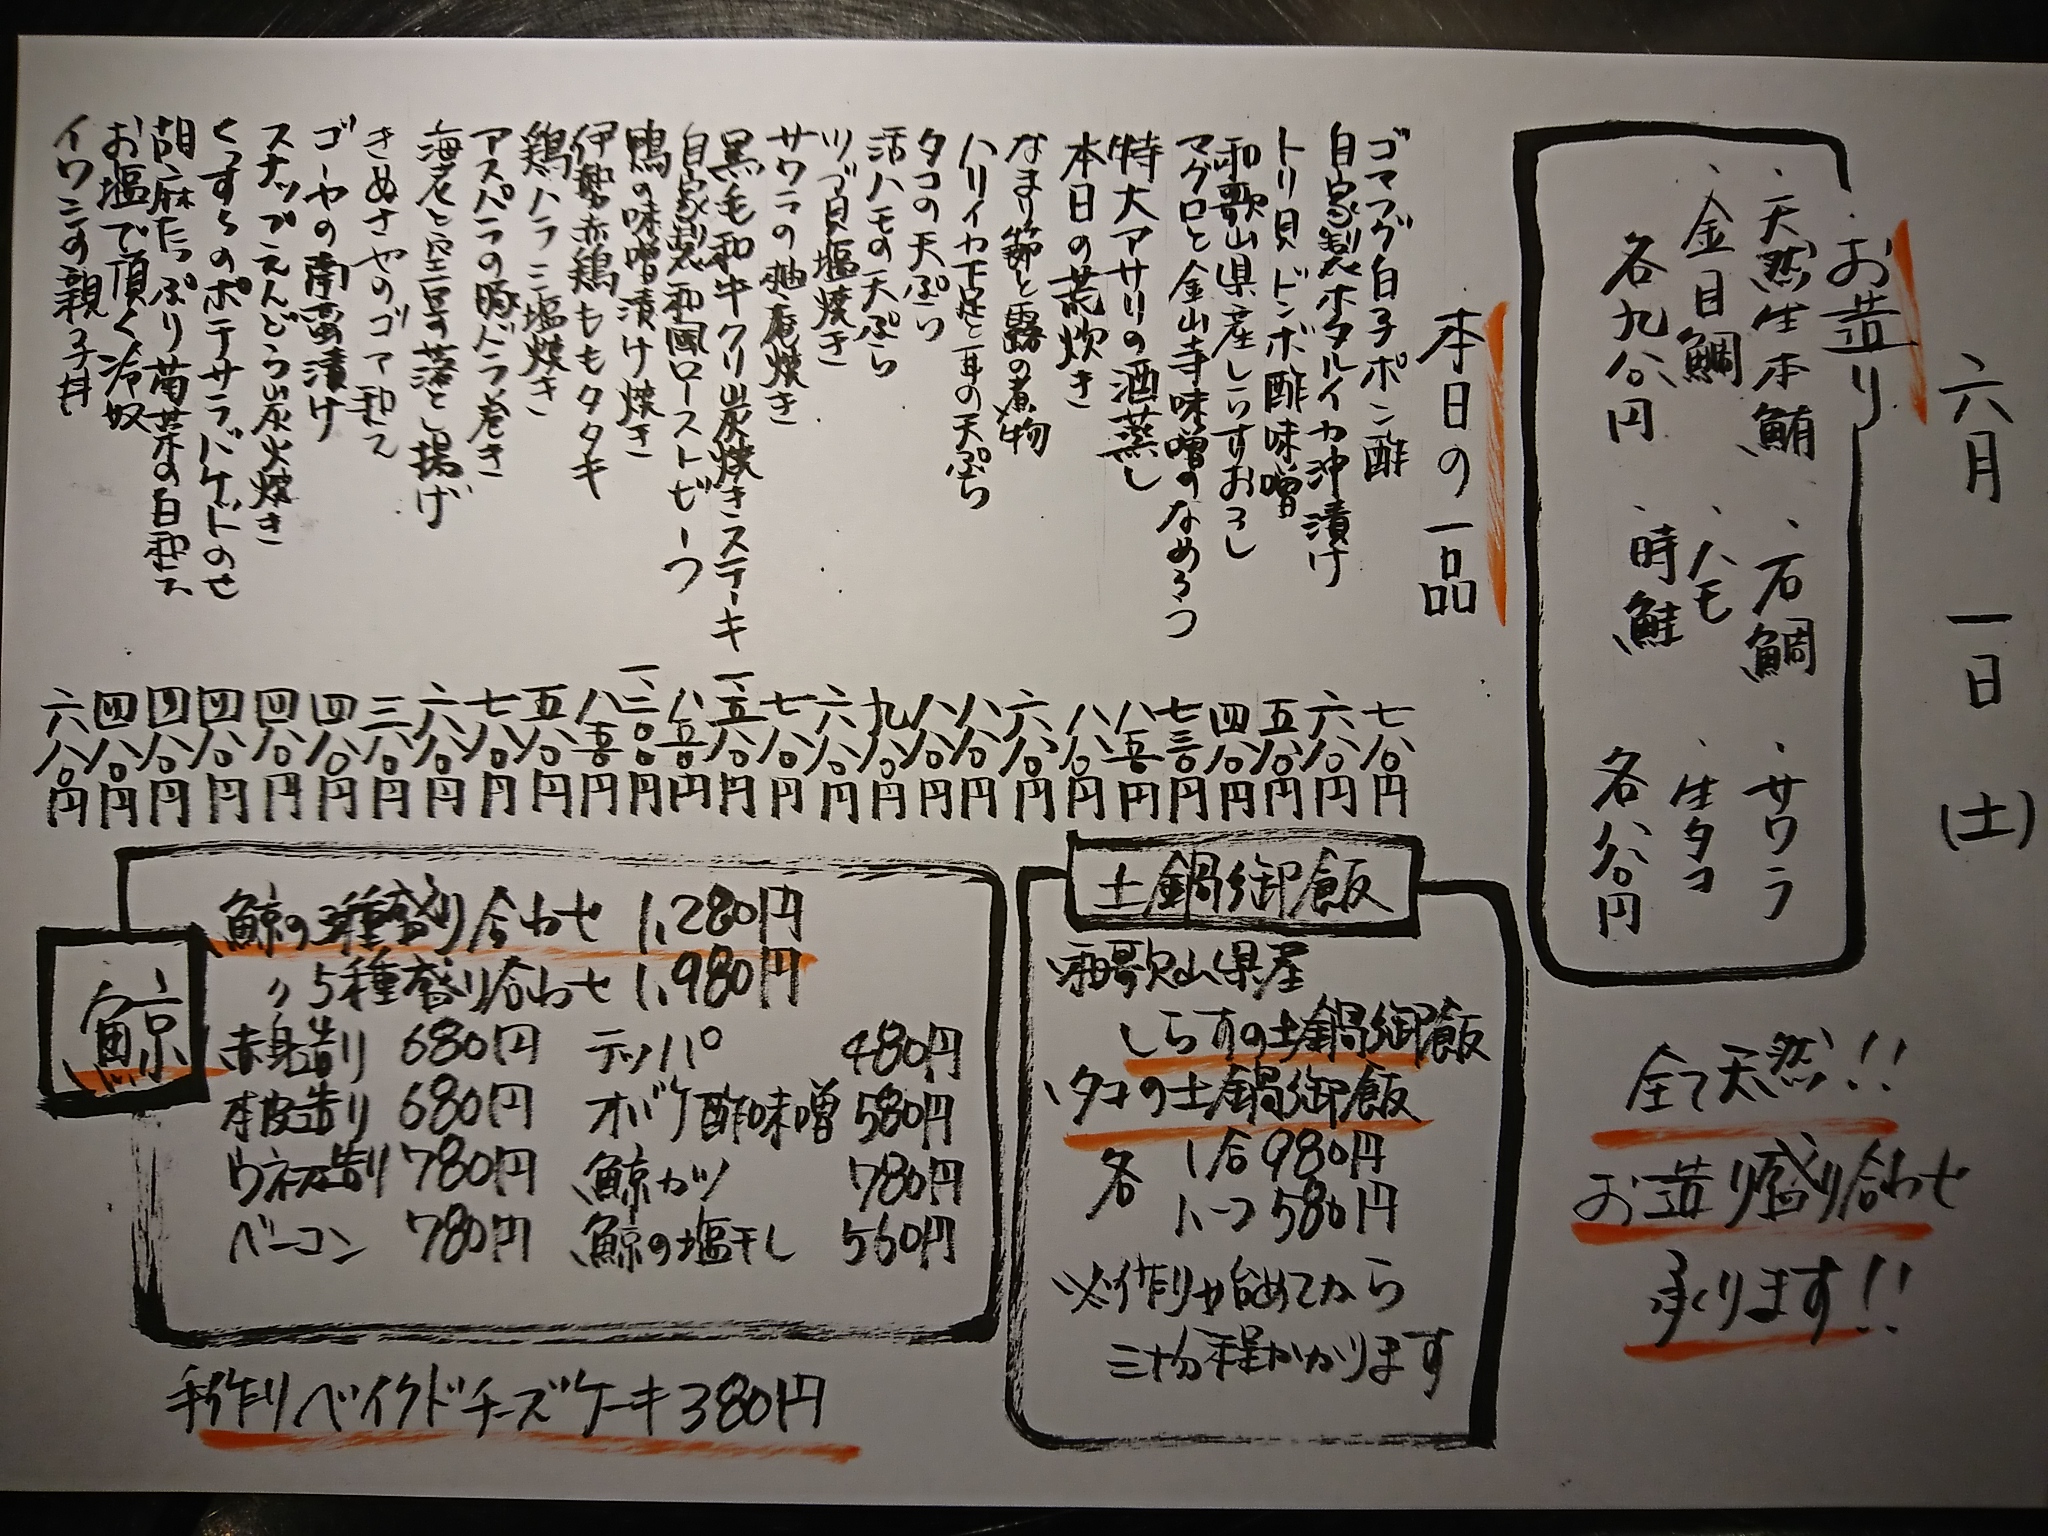 六月一日(土)
お造り
・天然生本鮪 ・石鯛 ・サワラ
・金目鯛 ・ハモ ・生タコ
各九八〇円 時鮭 各八八〇円
全て天然!!
お造り盛り合わせ
承ります!!
本日の一品
ゴマフグ白子ポン酢 七八〇円
自家製ホタルイカ沖漬け 六八〇円
トリ貝ドンボ酢味噌 五八〇円
和歌山県産しらすおろし 四八〇円
マグロと金山寺味噌のなめろう 七三〇円
特大アサリの酒蒸し 八五〇円
本日の荒炊き 八八〇円
なまり節と蕗の煮物 六八〇円
ハリイカ下足と耳の天ぷら 八八〇円
タコの天ぷら 八八〇円
活ハモの天ぷら 九八〇円
ツブ貝塩焼き 六八〇円
サワラの柚庵焼き 七八〇円
黒毛和牛クリ炭焼きステーキ 一、五八〇円
自家製和風ローストビーフ 八八〇円
鴨の味噌漬け焼き 一、二〇〇円
伊勢赤鶏ももタタキ 八八〇円
鶏ハラミ塩焼き 五八〇円
アスパラの豚バラ巻き 七八〇円
海老と空豆の落とし揚げ 六八〇円
きぬさやのゴマ和え 三八〇円
ゴーヤの南蛮漬け 四八〇円
スナップえんどう炭火焼き 四八〇円
くんすうのポテサラバゲットのせ 四八〇円
胡麻たっぷり菊菜の白和え 四八〇円
お塩で頂く冷奴 四八〇円
イワシの親子丼 六八〇円
土鍋御飯
・和歌山県産
しらすの土鍋御飯
・タコの土鍋御飯
各 1合980円
ハーフ580円
※作り始めてから
三十分程かかります
鯨
鯨の3種盛り合わせ 1,280円
〃 5種盛り合わせ 1,980円
赤身造り 680円 テッパ 480円
本皮造り 680円 オバケ酢味噌 580円
ウネス造り 780円 鯨カツ 780円
ベーコン 780円 鯨の塩干し 560円
手作りベイクドチーズケーキ380円